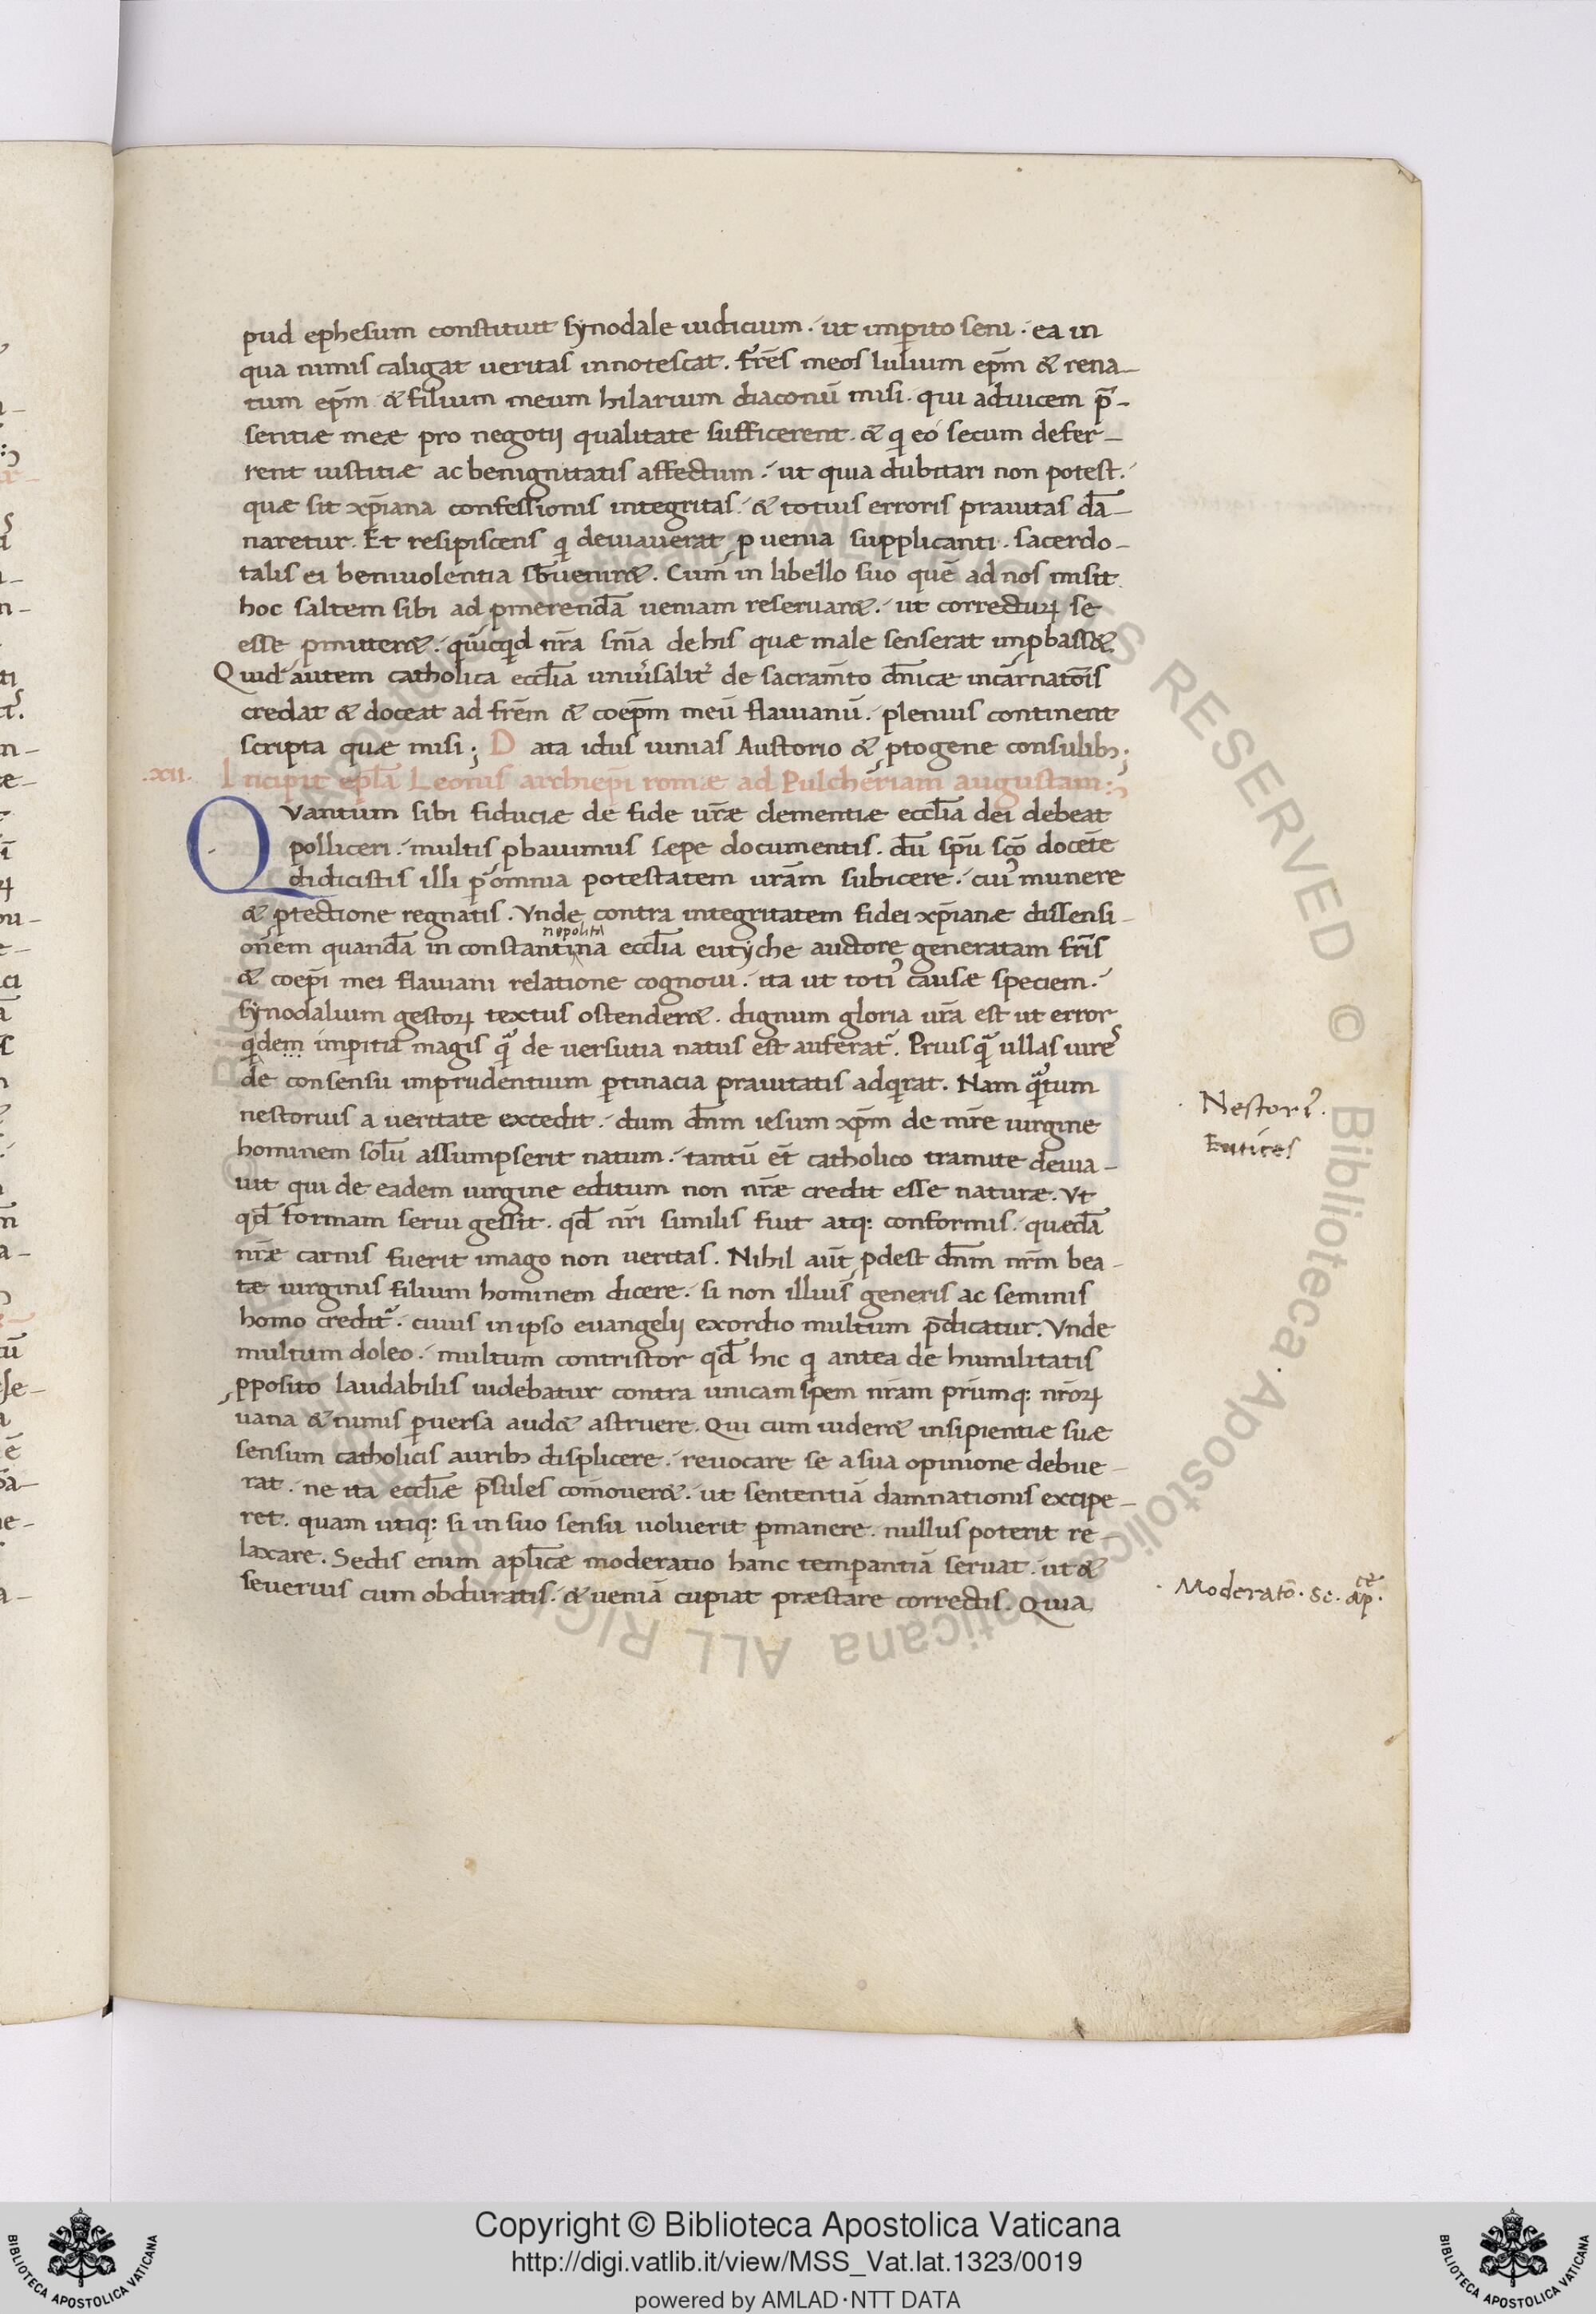 pud ephesum constituit synodale iudicium. ut imperito seni. ea in
qua nimis caligat ueritas innotescat. frēs meos Iulium ep̄m & rena-
tum ep̄m & filium meum hilarium diaconū misi. qui aduicem p̄-
sentiæ meæ pro negotij qualitate sufficerent. & qi eo secum defer-
rent iustitiæ ac benignitatis affectum. ut quia dubitari non potest.
quæ sit xp̄iana confessionis integritas. & totius erroris prauitas dā-
naretur. Et resipiscens qi deuiauerat ꝓ uenia supplicanti. sacerdo-
talis ei beniuolentia sb̄ueniret. Cum in libello suo quē ad nos misit
hoc saltem sibi ad ꝓmerendā ueniam reseruaret. ut correcturꝝ se
esse ꝓmitteret. quicqid nr̄a sn̄ia de his quæ male senserat impbasset.
Quid autem catholica eccl̄ia uniuꝰsalitꝰ de sacram̄to dn̄icæ incarnatōis
credat & doceat ad frēm & coep̄m meū flauianū. plenius continent
scripta quæ misi; Data idus iunias Austorio & ꝓtogene consulibꝫ;
.xii. Incipit epl̄a Leonis archiep̄i romæ ad Pulcheriam augustam:
Quantum sibi fiduciæ de fide ur̄æ clementiæ eccl̄ia dei debeat
polliceri. multis ꝓbauimus sepe documentis. dū sp̄u scō docēte
didicistis illi ꝑ omnia potestatem ur̄am subicere. cuiꝰ munere
& ꝓtectione regnatis. Vnde contra integritatem fidei xp̄ianæ dissensi-
nopolita
onem quandā in constantina eccl̄ia eutyche auctore generatam fr̄is
& coep̄i mei flauiani relatione cognoui. ita ut totiꝰ causæ speciem.
synodalium gestoꝝ textus ostenderet. dignum gloria ur̄a est ut error
qidem imꝑitia magis qª de uersutia natus est auferatꝰ. Prius qª ullas uires
de consensu imprudentium ꝑtinacia prauitatis adqirat. Nam qªtum
nestorius a ueritate excedit. dum dn̄m iesum xp̄m de mr̄e uirgine
hominem solū assumpserit natum. tantū et̄ catholico tramite deuia-
uit qui de eadem uirgine editum non nr̄æ credit esse naturæ. Vt
qd̄ formam serui gessit. qd̄ nr̄i similis fuit atq: conformis. quædā
nr̄æ carnis fuerit imago non ueritas. Nihil aut̄ ꝓdest dn̄m nr̄m bea-
tæ uirginis filium hominem dicere. si non illius generis ac seminis
homo creditꝰ. cuius in ipso euangelij exordio multum p̄dicatur. Vnde
multum doleo. multum contristor qd̄ hic qi antea de humilitatis
ꝓposito laudabilis uidebatur contra unicam spem nr̄am pr̄umq: nr̄oꝝ
uana & nimis ꝑuersa audet astruere. Qui cum uideret insipientiæ suæ
sensum catholicis auribꝫ displicere. reuocare se a sua opinione debue-
rat. ne ita eccl̄iæ p̄sules com̄oueret. ut sententiā damnationis excipe-
ret. quam utiq: si in suo sensu uoluerit ꝑmanere. nullus poterit re-
laxare. Sedis enim apl̄icæ moderatio hanc temꝑantiā seruat. ut &
seuerius cum obduratis. & ueniā cupiat præstare correctis. Quia
Nestoriꝰ.
Eutices
Moderatō. Se. ap̄cē.
Copyright © Biblioteca Apostolica Vaticana
http://digi.vatlib.it/view/MSS_Vat.lat.1323/0019
powered by AMLAD·NTT DATA
BIBLIOTECA APOSTOLICA VATICANA
BIBLIOTECA APOSTOLICA VATICANA